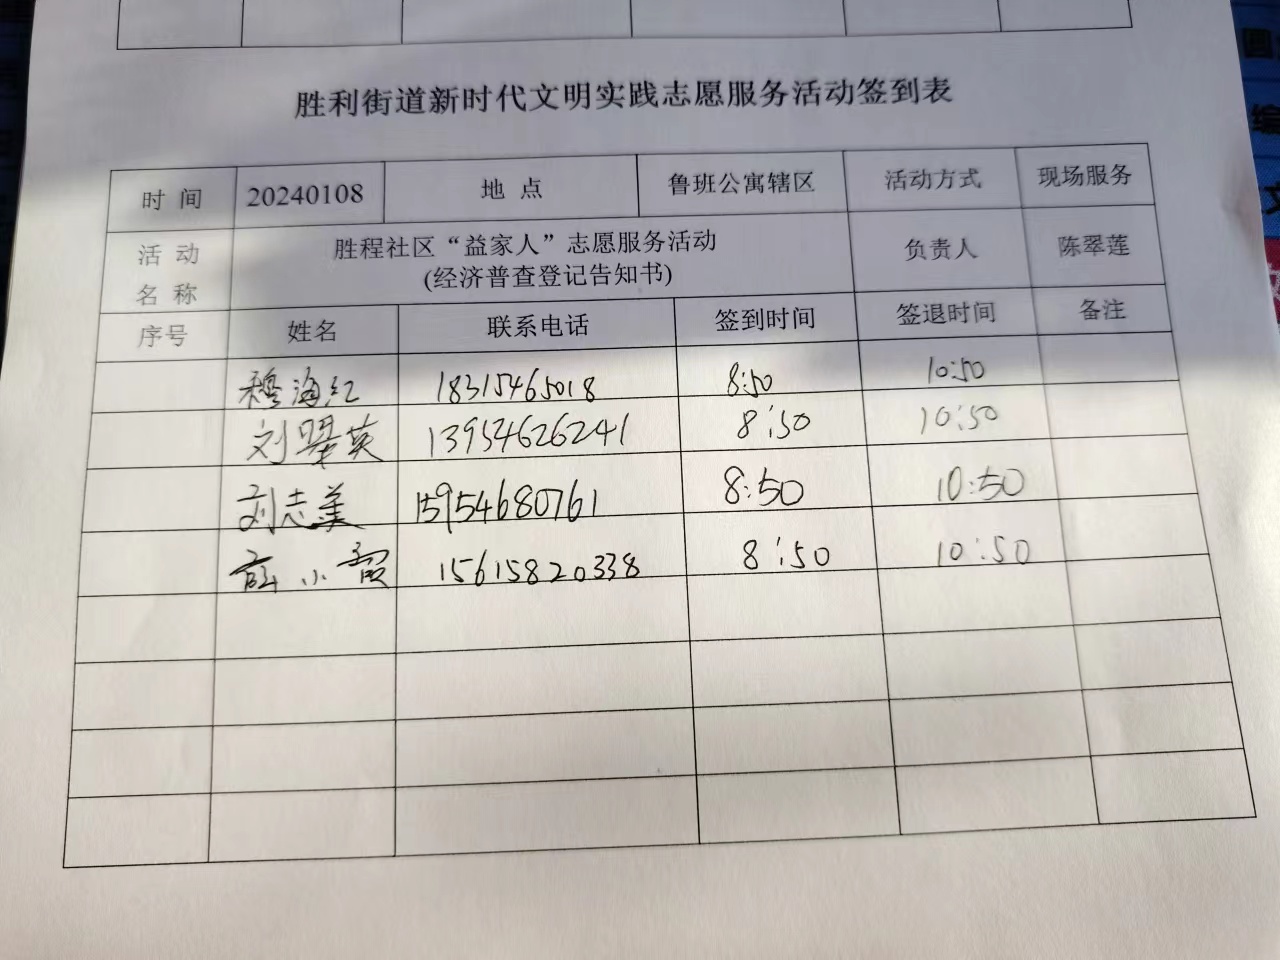 胜利街道新时代文明实践志愿服务活动签到表
时 间 20240108 地 点 鲁班公寓辖区 活动方式 现场服务
活 动 名 称 胜程社区“益家人”志愿服务活动 (经济普查登记告知书) 负责人 陈翠莲
序号 姓名 联系电话 签到时间 签退时间 备注
穆海红 18315465018 8:50 10:50
刘翠英 13954626241 8:50 10:50
刘志美 15954680761 8:50 10:50
薛小霞 15615820338 8:50 10:50